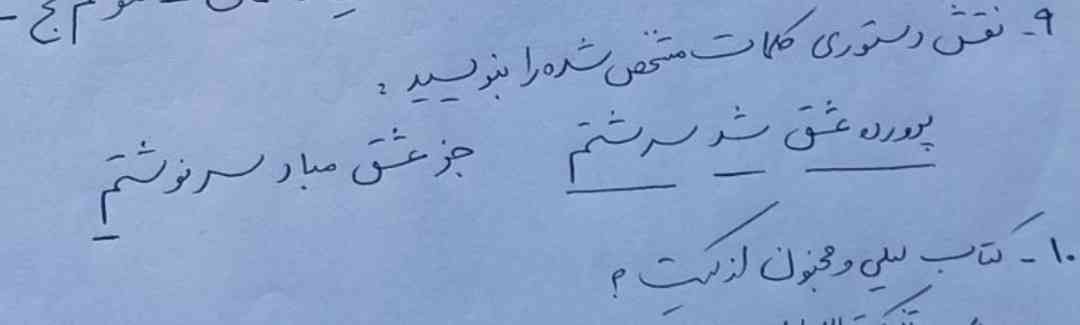 ۹- نقش دستوری کلمات مشخص شده را بنویسید :
پرورده عشق شد سرشتم جز عشق مباد سرنوشتم
۱۰- کتاب لیلی و مجنون از کیست ؟